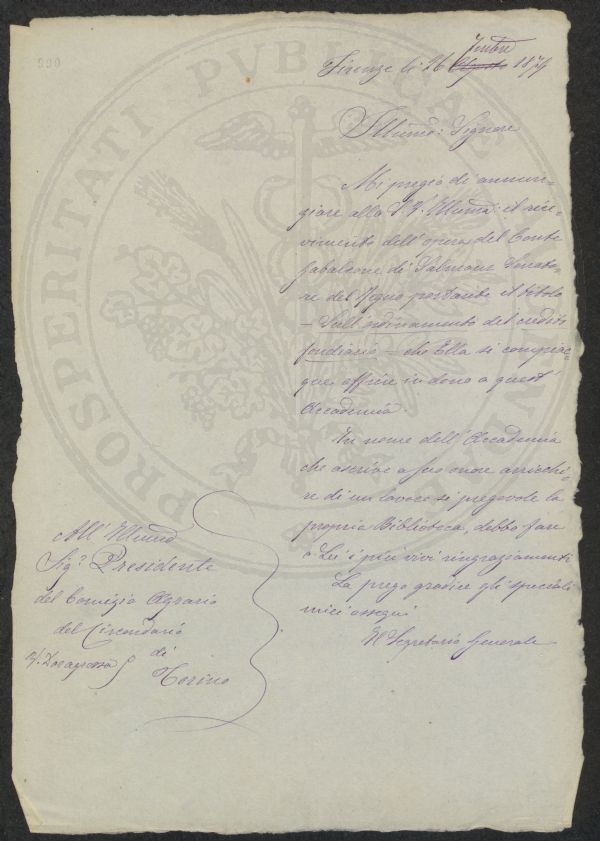 990
Firenze li 26 Agosto 7mbre 1874
Illumo: Signore
Mi pregio di annun-
ziare alla S. V. Illuma: il rice-
vimento dell'opera del Conte
Gabaleone di Salmour Senato-
re del Regno portante il titolo
– Sull'ordinamento del credito
fondiario – che Ella si compiac-
que offrire in dono a quest'
Accademia.
In nome dell'Accademia
che ascrive a suo onore arricchi-
re di un lavoro sì pregevole la
propria Biblioteca, debbo fare
a Lei i più vivi ringraziamenti
La prego gradire gli speciali
miei ossequi
Il Segretario Generale
All' Illumo
Sigr. Presidente
del Comizio Agrario
del Circondario
di
Torino
PROSPERITATI PVBLICAE